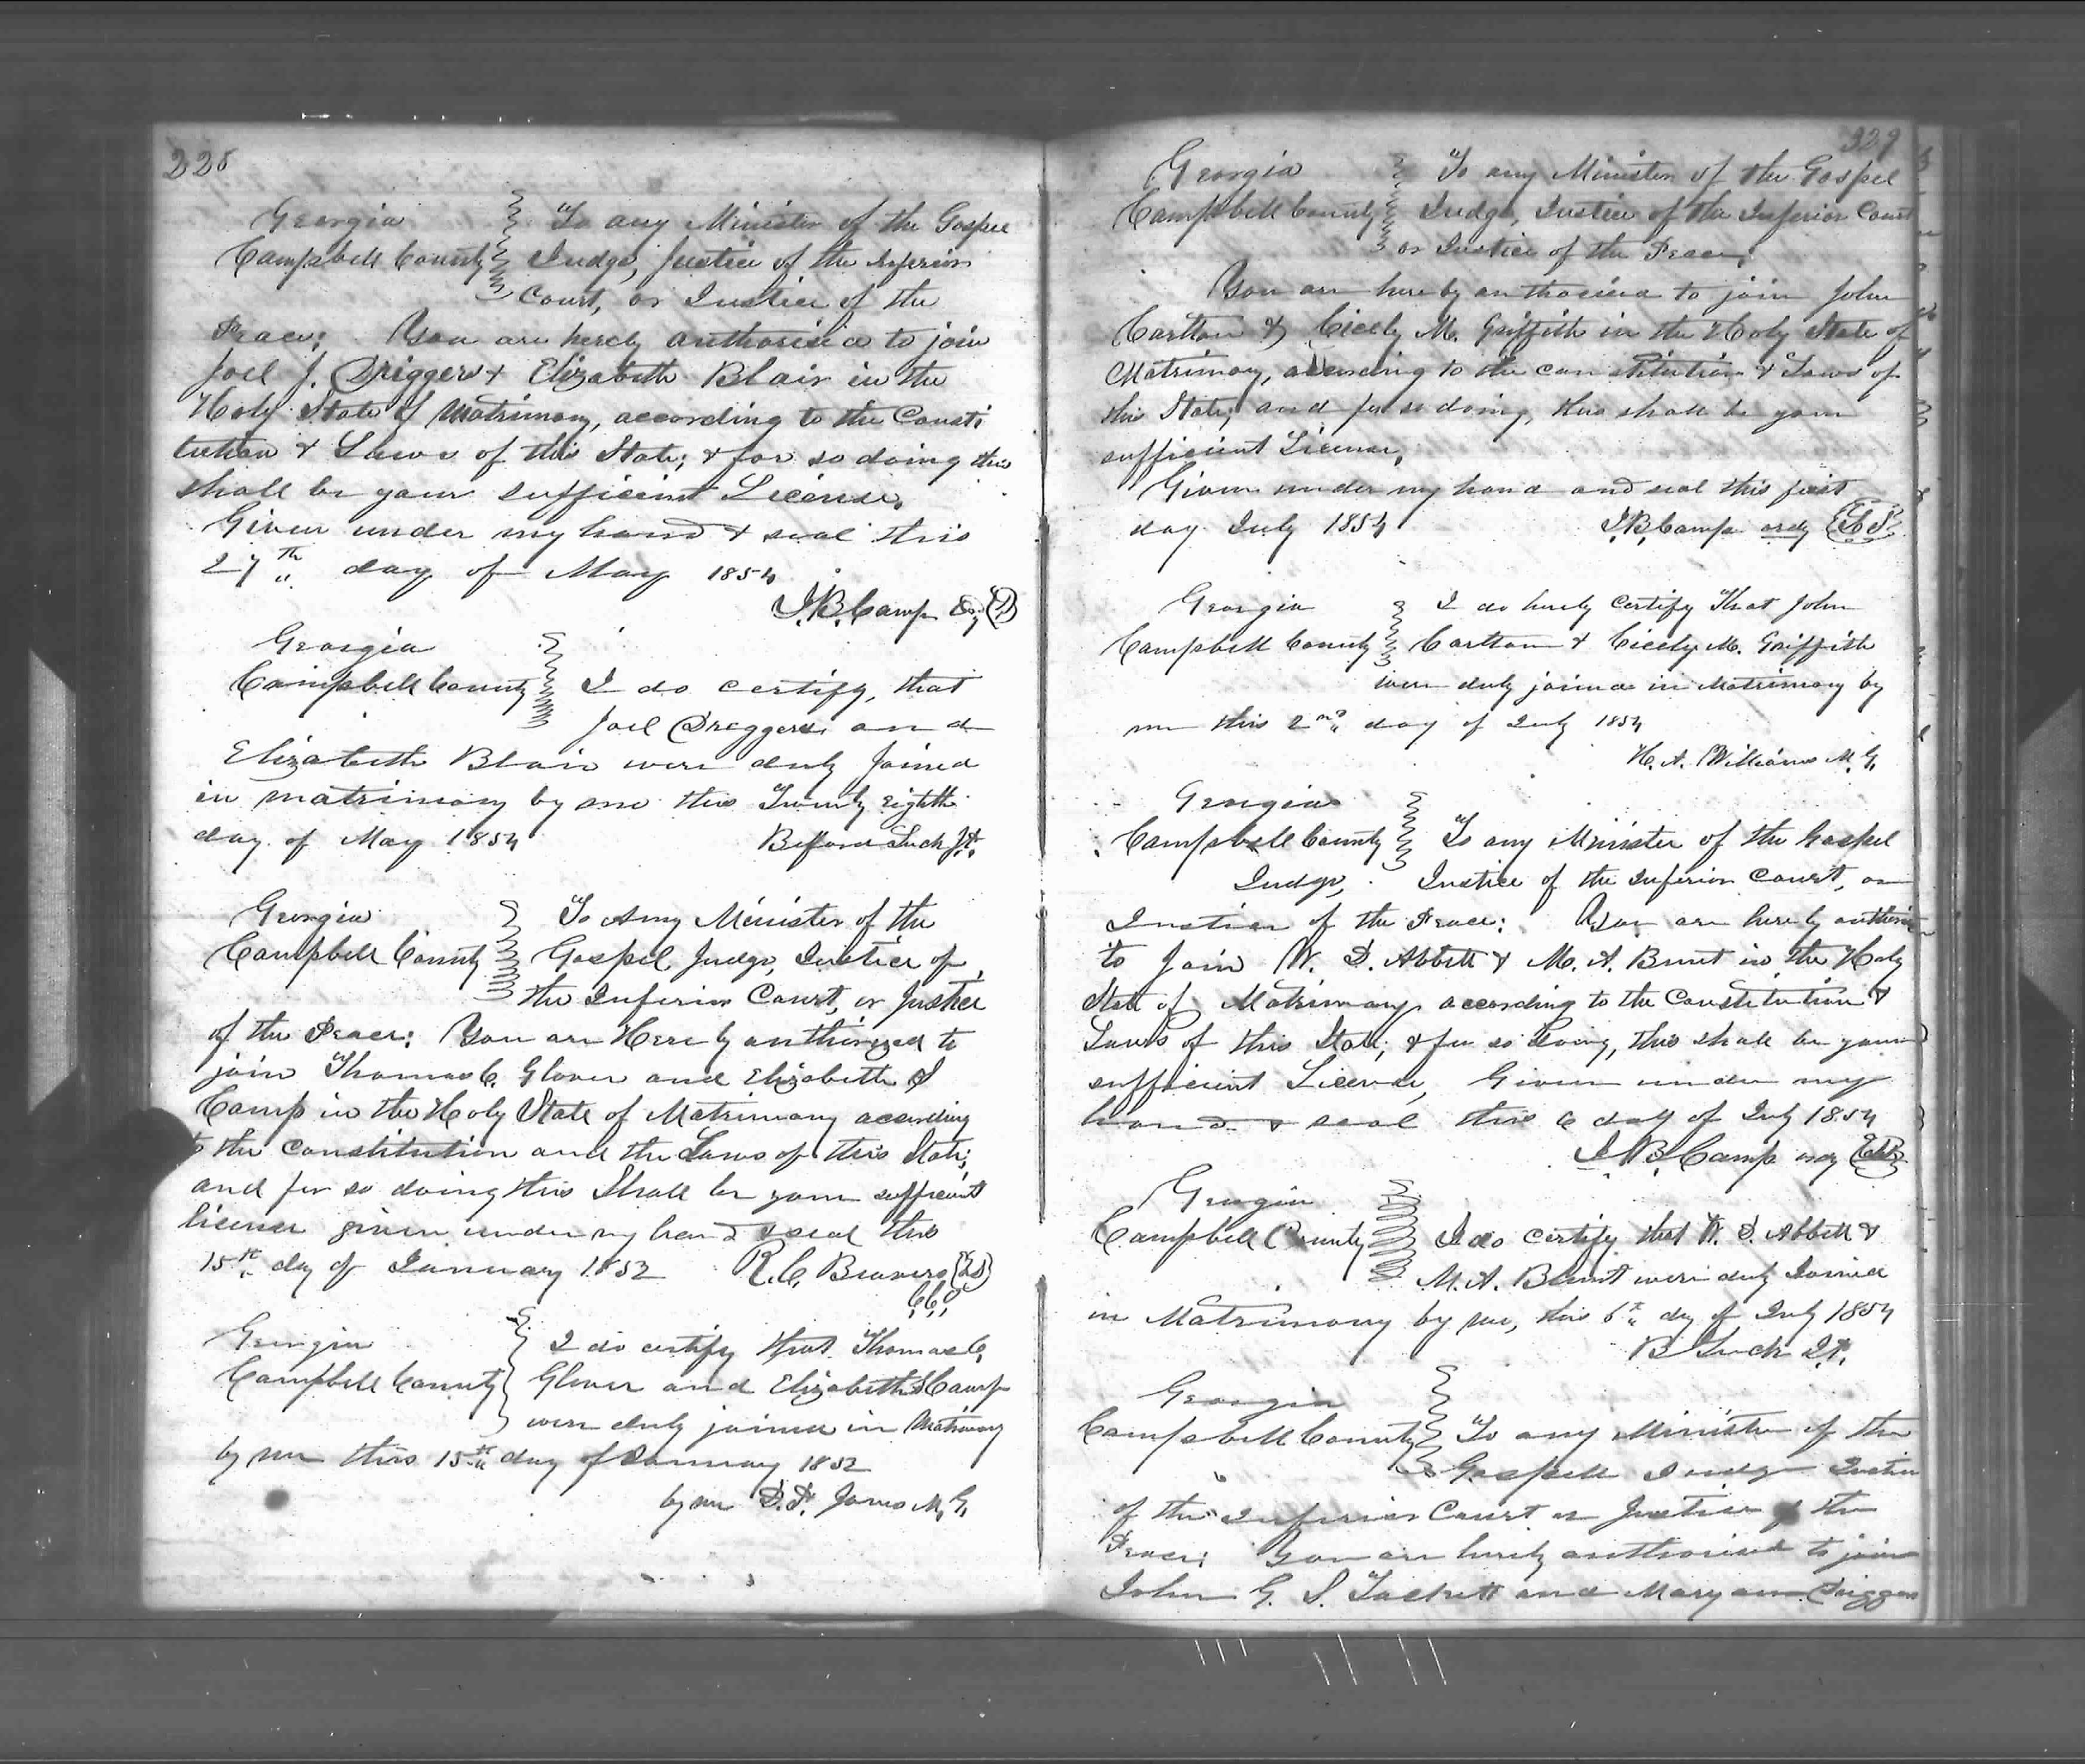 228
Georgia To any Minister of the Gospel
Campbell County Judge, Justice of the Inferior
Court, or Justice of the
Peace; You are hereby authorised to join
Joel J. Driggers & Elizabeth Blair in the
Holy State of Matrimony, according to the Consti
tution & Laws of this State; & for so doing this
shall be your sufficient License,
Given under my hand & seal this
27th day of May 1854
J.B. Camp
Georgia
Campbell County I do certify, that
Joel Draggers and
Elizabeth Blair were duly Joined
in matrimony by me this Twenty eighth
day of May 1854 Luck J.P.
Georgia To Any Minister of the
Campbell County Gospel, Judge, Justice of
the Inferior Court, or Justice
of the Peace; You are Hereby authorized to
join Thomas C. Glover and Elizabeth S
Camp in the Holy State of Matrimony according
to the Constitution and the Laws of this State;
and for so doing this Shall be your sufficient
license given under my hand & seal this
15th day of January 1852 R.C. Beavers (LS)
C.C.O
Georgia I do certify that Thomas C.
Campbell County Glover and Elizabeth S Camp
were duly joined in Matrimony
by me this 15th day of January 1852
by me James M.G.
329
Georgia To any Minister of the Gospel
Campbell County Judge, Justice of the Inferior Court
or Justice of the Peace;
You are hereby authorised to join John
Carlton & Cicely M. Griffith in the Holy State of
Matrimony, according to the constitution & Laws of
this State; and for so doing, this shall be your
sufficient License,
Given under my hand and seal this first
day July 1854 J.B. Camp ordy (L.S.)
Georgia I do hereby Certify That John
Campbell County Carlton & Cicely M. Griffith
were duly joined in Matrimony by
me this 2nd day of July 1854
H. A. Williams M.G.
Georgia
Campbell County To any Minister of the Gospel
Judge, Justice of the Inferior Court, or
Justice of the Peace; You are hereby
to Join W. D. Abbett & M. A. Brunt in the Holy
State of Matrimony according to the Constitution &
Laws of this State; & for so doing, this shall be your
sufficient License, Given under my
hand & seal this 6 day of July 1854
J. B. Camp ordy
Georgia
Campbell County I do certify that W. D. Abbett &
M. A. Brunt were duly Joined
in Matrimony by me, this 6th day of July 1854
B Luck J.P.
Georgia
Campbell County To any Minister of the
Gospell Judge Justice
of the Inferior Court or Justice of the
Peace; You are hereby authorised to join
John G. S. Tackett and Mary ann Driggers